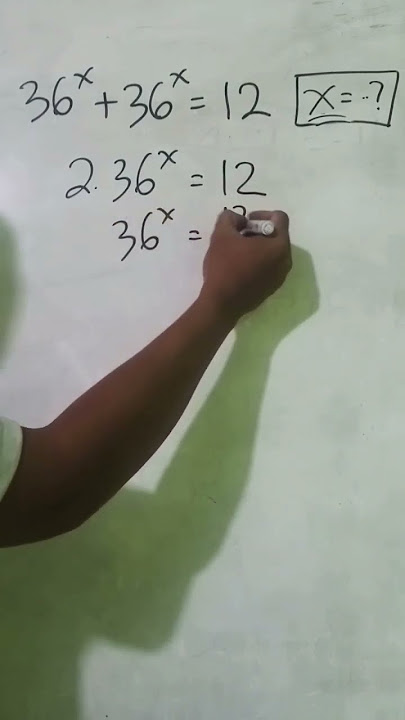 36ˣ + 36ˣ = 12 x = ..?
2. 36ˣ = 12
36ˣ =